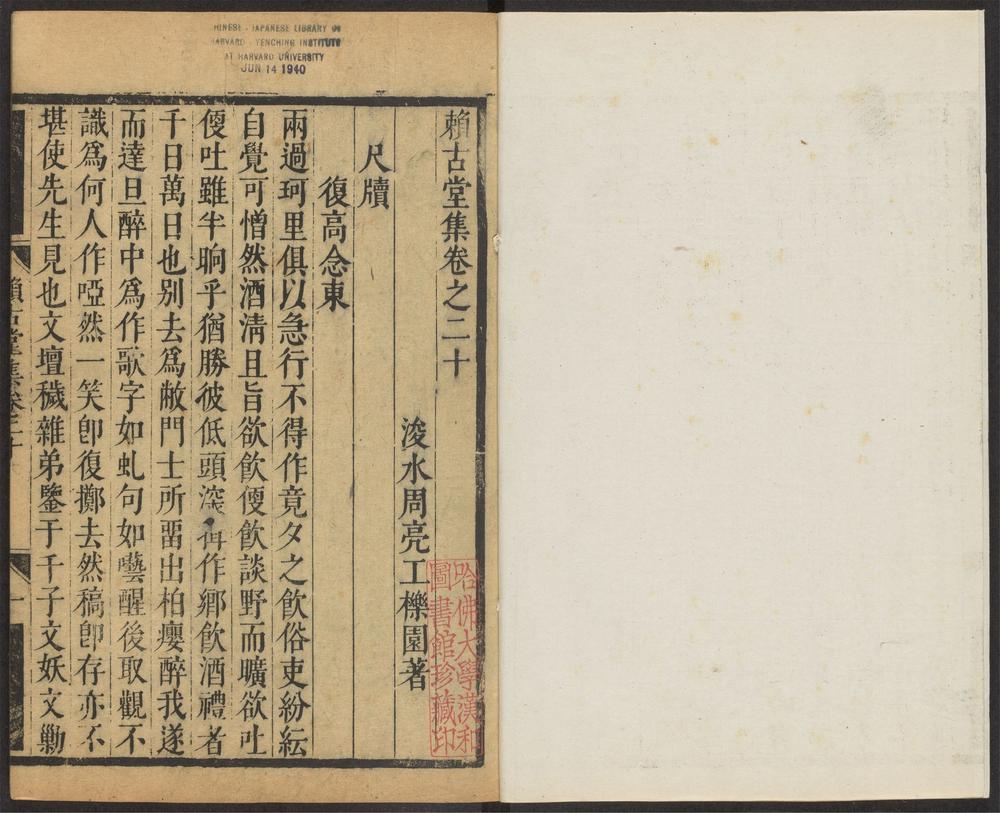 CHINESE - JAPANESE LIBRARY OF
HARVARD - YENCHING INSTITUTE
AT HARVARD UNIVERSITY
JUN 14 1940
賴古堂集卷之二十
浚水周亮工櫟園著
尺牘
復高念東
兩過珂里俱以急行不得作竟夕之飲俗吏紛紜
自覺可憎然酒清且旨欲飲便飲談野而曠欲吐
便吐雖半晌乎猶勝彼低頭深 作鄉飲酒禮者
千日萬日也別去爲敝門士所畱出柏癭醉我遂
而達旦醉中爲作歌字如虬句如囈醒後取觀不
識爲何人作啞然一笑卽復擲去然稿卽存亦不
堪使先生見也文壇穢雜弟鑒于千子文妖文勦
賴古堂集卷二十
一
哈佛大學漢和
圖書館珍藏印